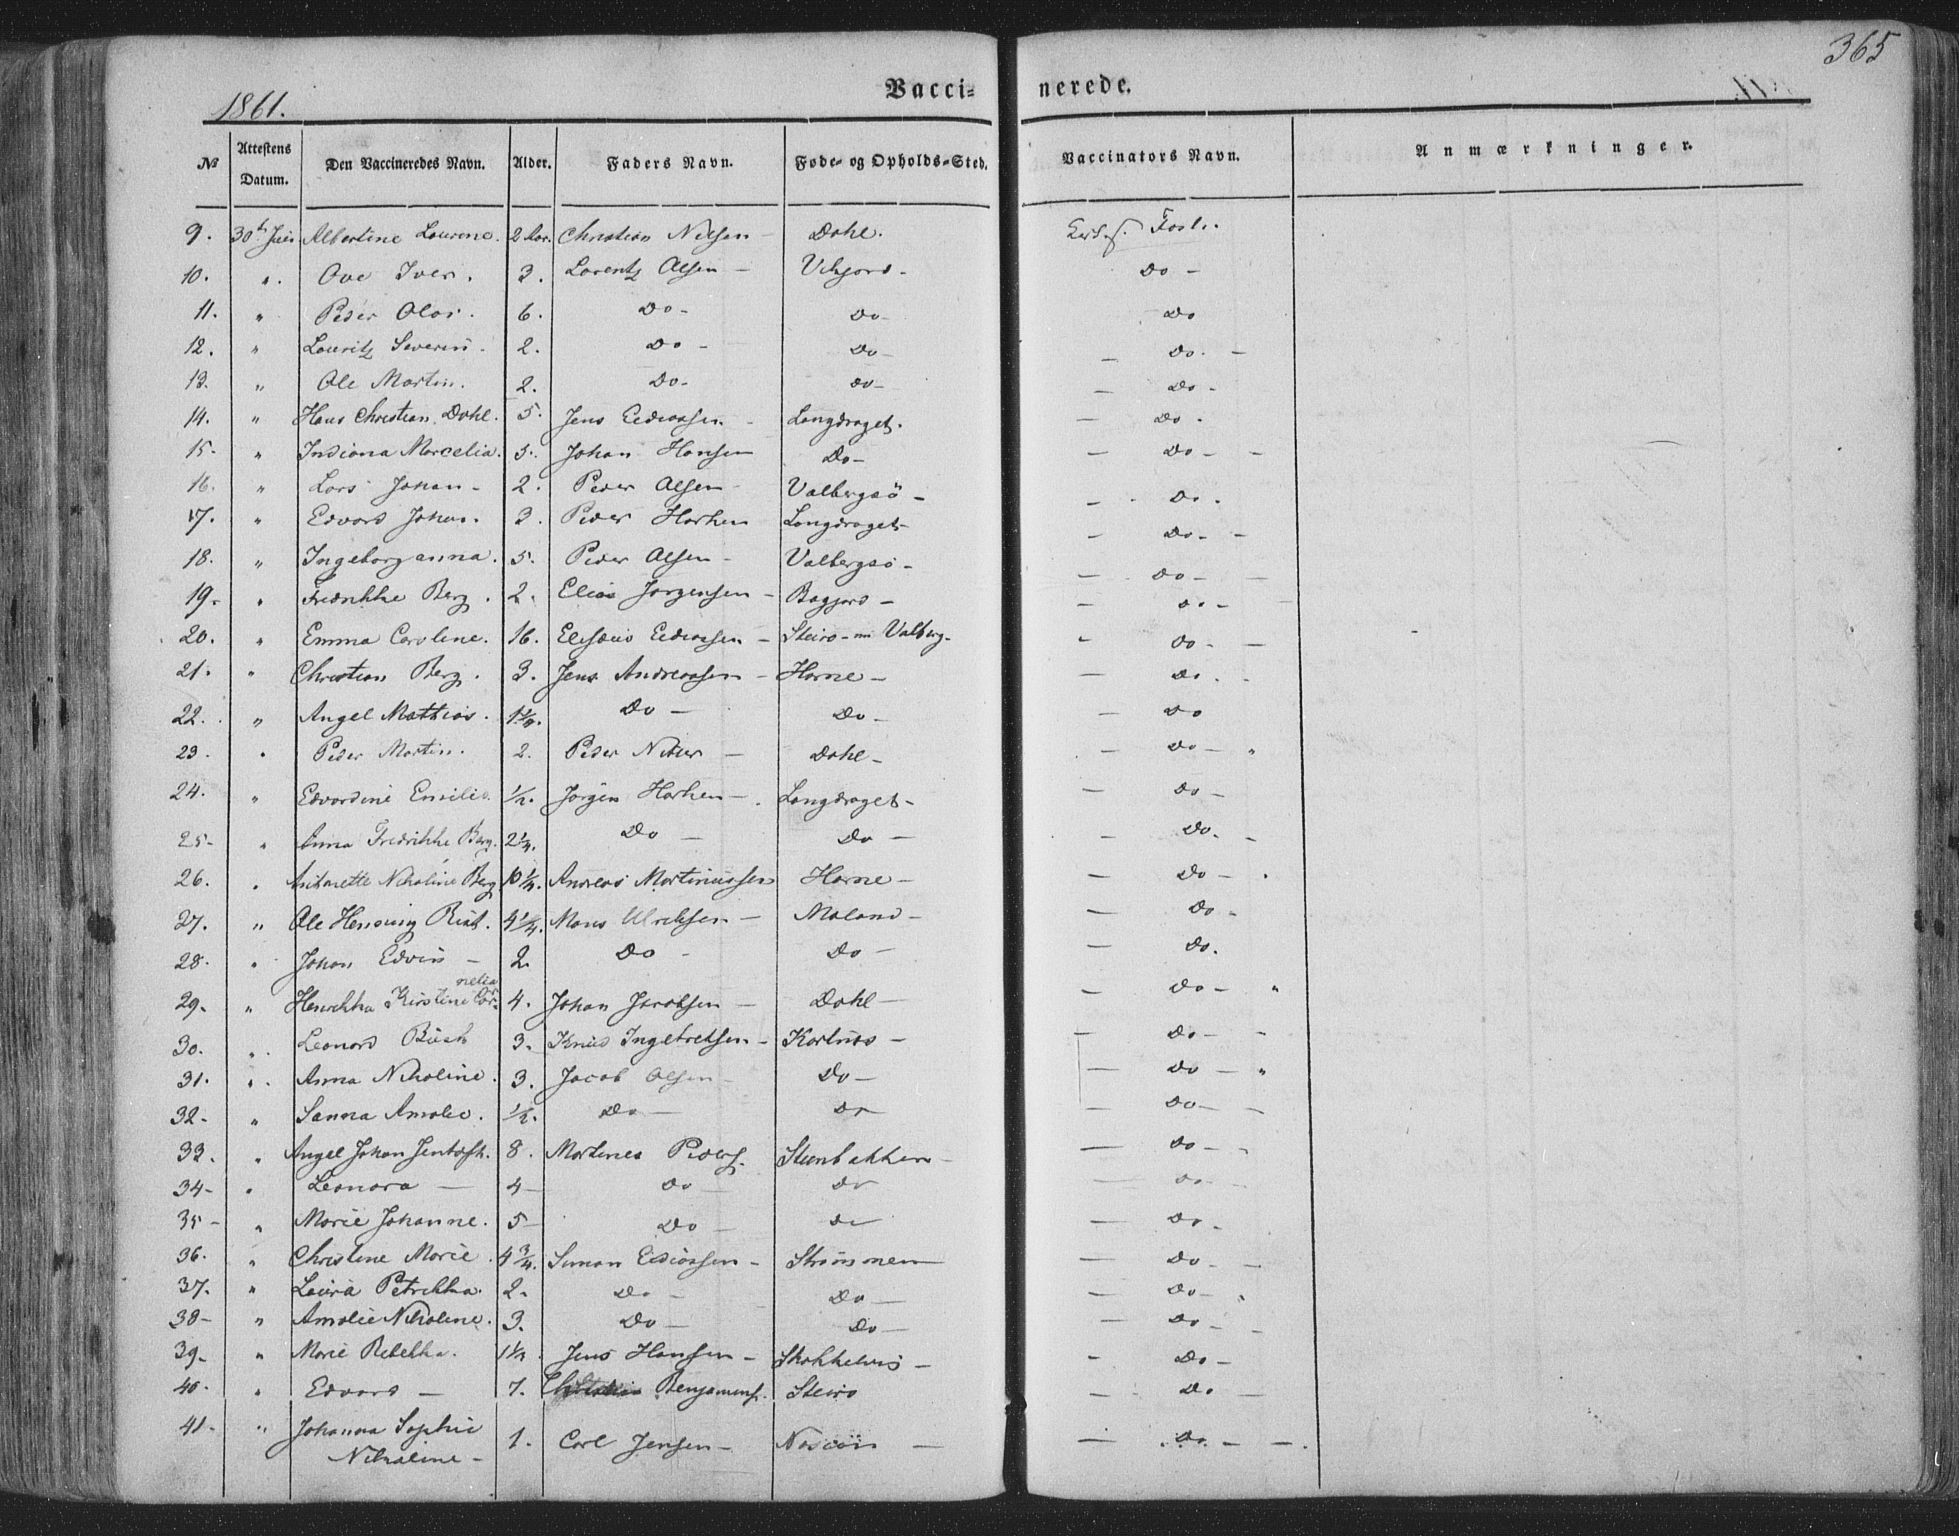 365
1861.
Vacci- nerede.
No
Attestens Datum.
Den Vaccineredes Navn.
Alder.
Faders Navn.
Føde- og Opholds-Sted.
Vaccinators Navn.
Anmærkninger.
9. 30te Juli Albertine Laurene. 2 Aar. Christian Nilsen - Dahl.
10. ". Ove Iver. 3. Lorentz Olsen - Vikjord - Do -
11. " Peder Olai. 6. Do - Do Do
12. " Louritz Severin. 2. Do - Do - - Do. -
13. " Ole Martin. 2. Do - Do - - Do -
14. " Hans Christian Dahl. 5. Jens Edvassen - Langdraget. - Do.
15. " Indiana Marcelia. 5. Johan Hansen Do - - Do - -
16. " Lars Johan - 2. Peder Olsen - Valbergsö - - Do.
17. " Edvard Johan. 3. Peder Harken Langdraget - - Do - -
18. " Ingeborg Anna. 5. Peder Olsen - Valbergsö - - Do - -
19. " Fredrikke Berg. 2. Elias Jørgensen - Bøgjord - - Do - -
20. " Emma Caroline. 16. Elisæus Edvassen - Steiro - Valberg. - Do - -
21. " Christian Berg. 3. Jens Andreassen - Horne - - Do. -
22. " Angel Mathias. Do - Do - - Do
23. " Peder Martin. 2. Peder Dahl - - Do - "
24. " Edvardine Emilie. 1/2. Jørgen Harken - Langdraget - - Do -
25 - " Anna Fredrikke Berg. 2 1/4. Do - Do - - Do. -
26. " Antonette Nikoline Berg 10 1/4. Andreas Martinussen Horne - - Do - "
27. " Ole Henning Rist. 4 1/4. Mons Ulriksen - Moland - - Do -
28. " Johan Edvin - 2. Do - Do - - Do.
29. " Henrikka Kirstine Cornelia 4. Johan Jacobsen - Dahl - - Do - "
30. " Leonard Busk 3. Knud Ingebretsen - Kartnæs - - Do - -
31. " Anna Nikoline. 3. Jacob Olsen - Do - - Do - "
32. " Sanna Amalie. 1/2. Do - Do - Do - -
33. " Angel Johan Jentoft. 8. Martines Peders. Steenbakken - - Do - -
34 - " Leonora - 4 - Do - Do - Do - -
35 - " Marie Johanne. 5 - Do - Do - Do -
36. " Christine Marie. 4 3/4. Simon Edvassen - Strømmen - Do - -
37. " Laura Petrikka. 2 - Do - Do - - Do - "
38 - " Amalie Nikoline. 3. Do - Do - - Do - -
39 - " Marie Rebekka. Jens Hansen - - Do -
40. " Edvard - 7. Benjamins. Steiro - Do -
41 - " Johanna Sophie Nikoline - 1. Carl Jensen - - - Do - -